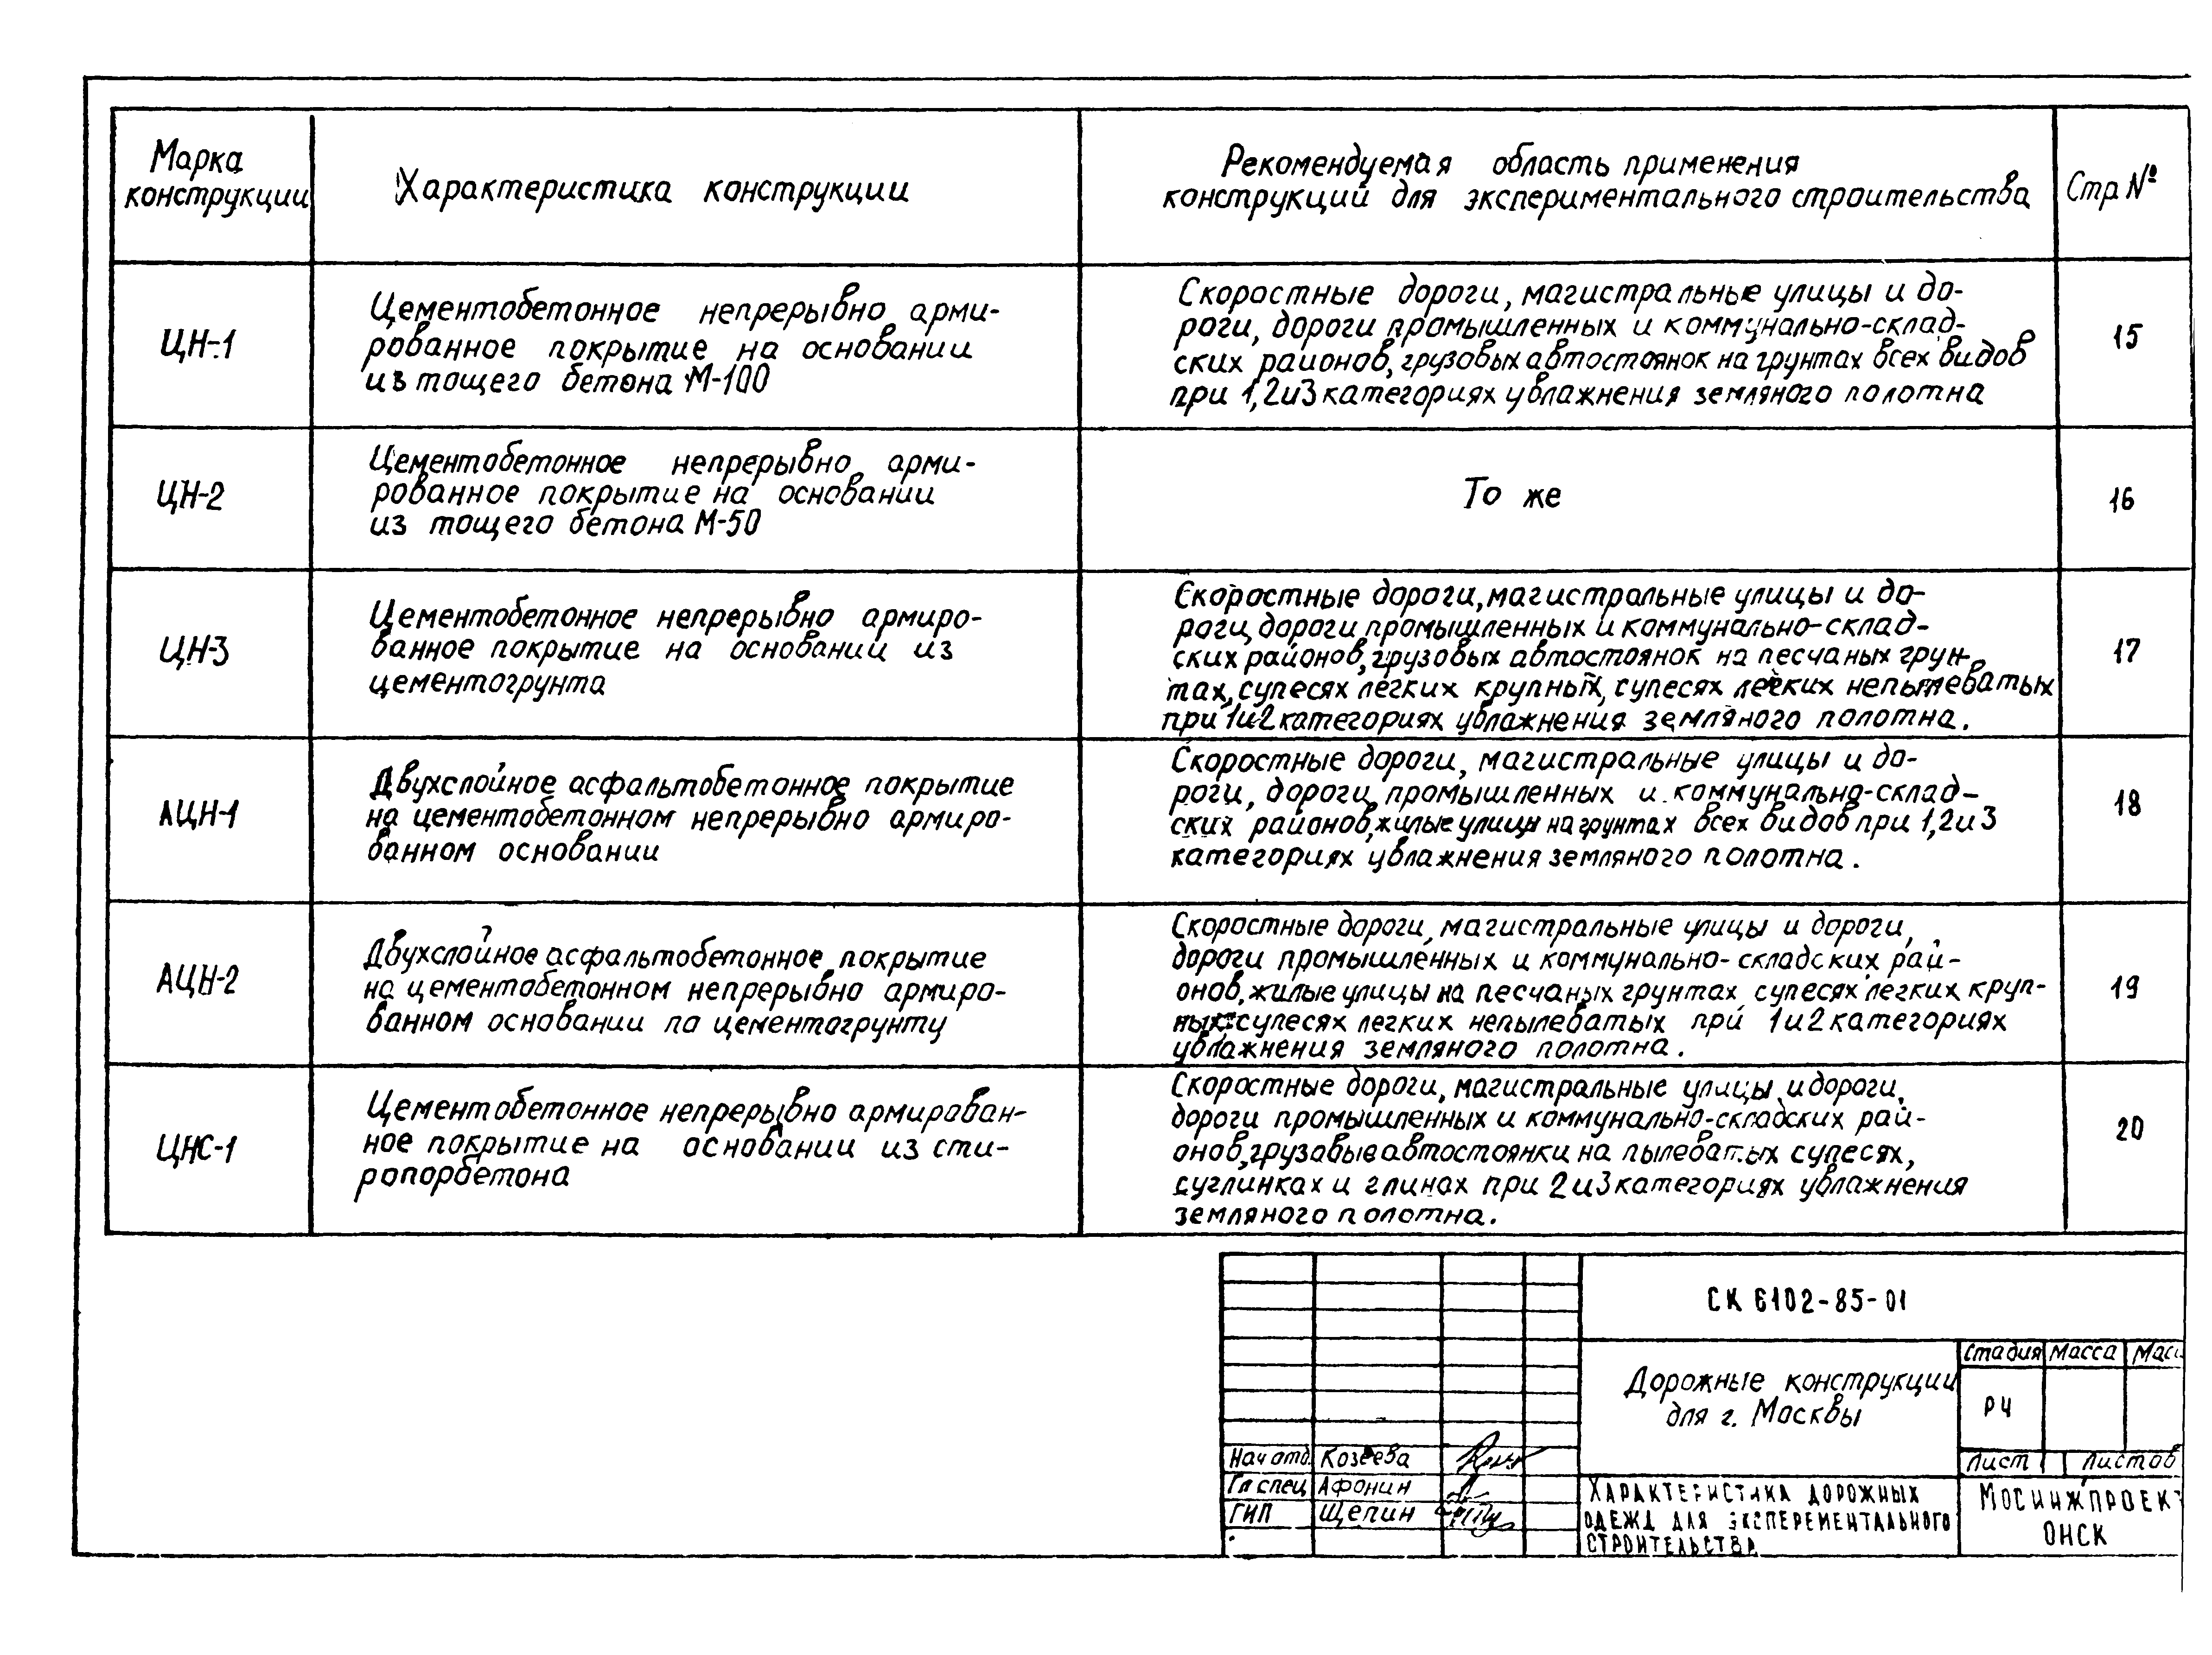 Марка
конструкции
Характеристика конструкции
Рекомендуемая область применения
конструкций для экспериментального строительства
Стр №
ЦН-1
Цементобетонное непрерывно арми-
рованное покрытие на основании
из тощего бетона М-100
Скоростные дороги, магистральные улицы и до-
роги, дороги промышленных и коммунально-склад-
ских районов, грузовых автостоянок на грунтах всех видов
при 1,2и3 категориях увлажнения земляного полотна
15
ЦН-2
Цементобетонное непрерывно арми-
рованное покрытие на основании
из тощего бетона М-50
То же
16
ЦН-3
Цементобетонное непрерывно армиро-
ванное покрытие на основании из
цементогрунта
Скоростные дороги, магистральные улицы и до-
роги, дороги промышленных и коммунально-склад-
ских районов, грузовых автостоянок на песчаных грун-
тах, супесях легких крупных, супесях легких непылеватых
при 1и2 категориях увлажнения земляного полотна.
17
АЦН-1
Двухслойное асфальтобетонное покрытие
на цементобетонном непрерывно армиро-
ванном основании
Скоростные дороги, магистральные улицы и до-
роги, дороги промышленных и коммунально-склад-
ских районов, жилые улицы на грунтах всех видов при 1,2и3
категориях увлажнения земляного полотна.
18
АЦН-2
Двухслойное асфальтобетонное покрытие
на цементобетонном непрерывно армиро-
ванном основании по цементогрунту
Скоростные дороги, магистральные улицы и дороги,
дороги промышленных и коммунально-складских рай-
онов, жилые улицы на песчаных грунтах, супесях легких круп-
ных, супесях легких непылеватых при 1и2 категориях
увлажнения земляного полотна.
19
ЦНС-1
Цементобетонное непрерывно армирован-
ное покрытие на основании из сти-
ропорбетона
Скоростные дороги, магистральные улицы и дороги,
дороги промышленных и коммунально-складских рай-
онов, грузовые автостоянки на пылеватых супесях,
суглинках и глинах при 2и3 категориях увлажнения
земляного полотна.
20
СК 6102-85-01
Дорожные конструкции
для г. Москвы
Стадия Масса Мас
РЧ
Лист Листов
Нач отд. Козеева
Гл спец Афонин
ГИП Щепин
Характеристика дорожных
одежд для эксперементального
строительства
Мосинжпроект
ОНСК